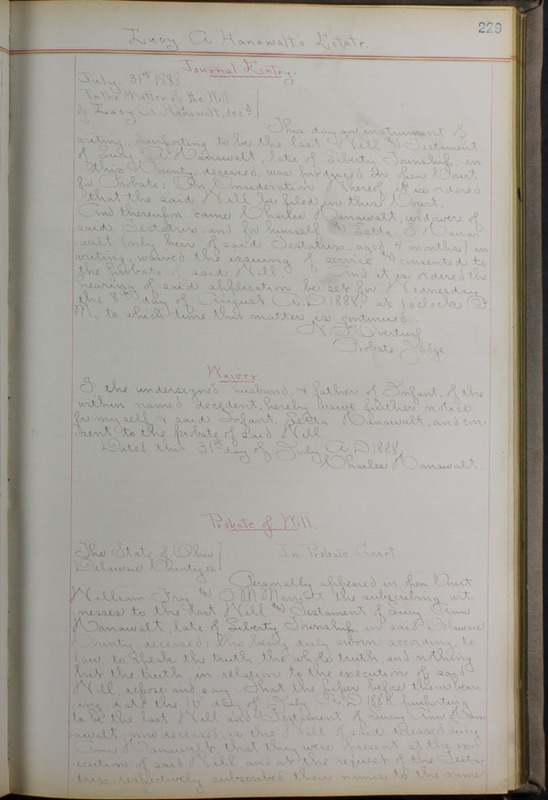 229
Lucy A. Hanawalt's Estate.
Journal Entry.
July 31st 1888
In the Matter of the Will
of Lucy A. Hanawalt, dec'd
This day an instrument of
writing, purporting to be the last Will and Testament
of Lucy A. Hanawalt, late of Liberty Township, in
this County, deceased, was produced in open Court
for Probate: On Consideration Whereof it is ordered
that the said Will be filed in this Court.
And thereupon came Charles Hanawalt, widower of
said Testatrix, and for himself and Zetta Hana-
walt (only heir of said Testatrix, aged 4 months) in
writing, waived the issuing of service and consented to
the probate of said Will. And it is ordered the
hearing of said application be set for Wednesday
the 8th day of August A.D. 1888, at 1 o'clock P.
M., to which time this matter is continued.
N. F. Overturf
Probate Judge
Waiver
I the undersigned husband, & father of Infant, of the
within named decedent, hereby waive further notice
for myself & said Infant, Zetta Hanawalt, and con-
sent to the probate of said Will
Dated this 31st day of July A.D. 1888.
Charles Hanawalt.
Probate of Will
The State of Ohio
Delaware County ss
In Probate Court.
Personally appeared in open Court
William Fry and O. M. Merriott the subscribing wit-
nesses to the last Will and Testament of Lucy Ann
Hanawalt, late of Liberty Township, in said Delaware
County, deceased: who being duly sworn according to
law to speak the truth, the whole truth, and nothing
but the truth, in relation to the execution of said
Will, depose and say: That the paper before them bear-
ing date the 16 day of July A.D. 1888 purporting
to be the last Will and Testament of Lucy Ann Han-
awalt, now deceased, is the Will of said deceased Lucy
Ann Hanawalt, that they were present at the ex-
ecution of said Will and at the request of the Testa-
trix, respectively subscribed their names to the same